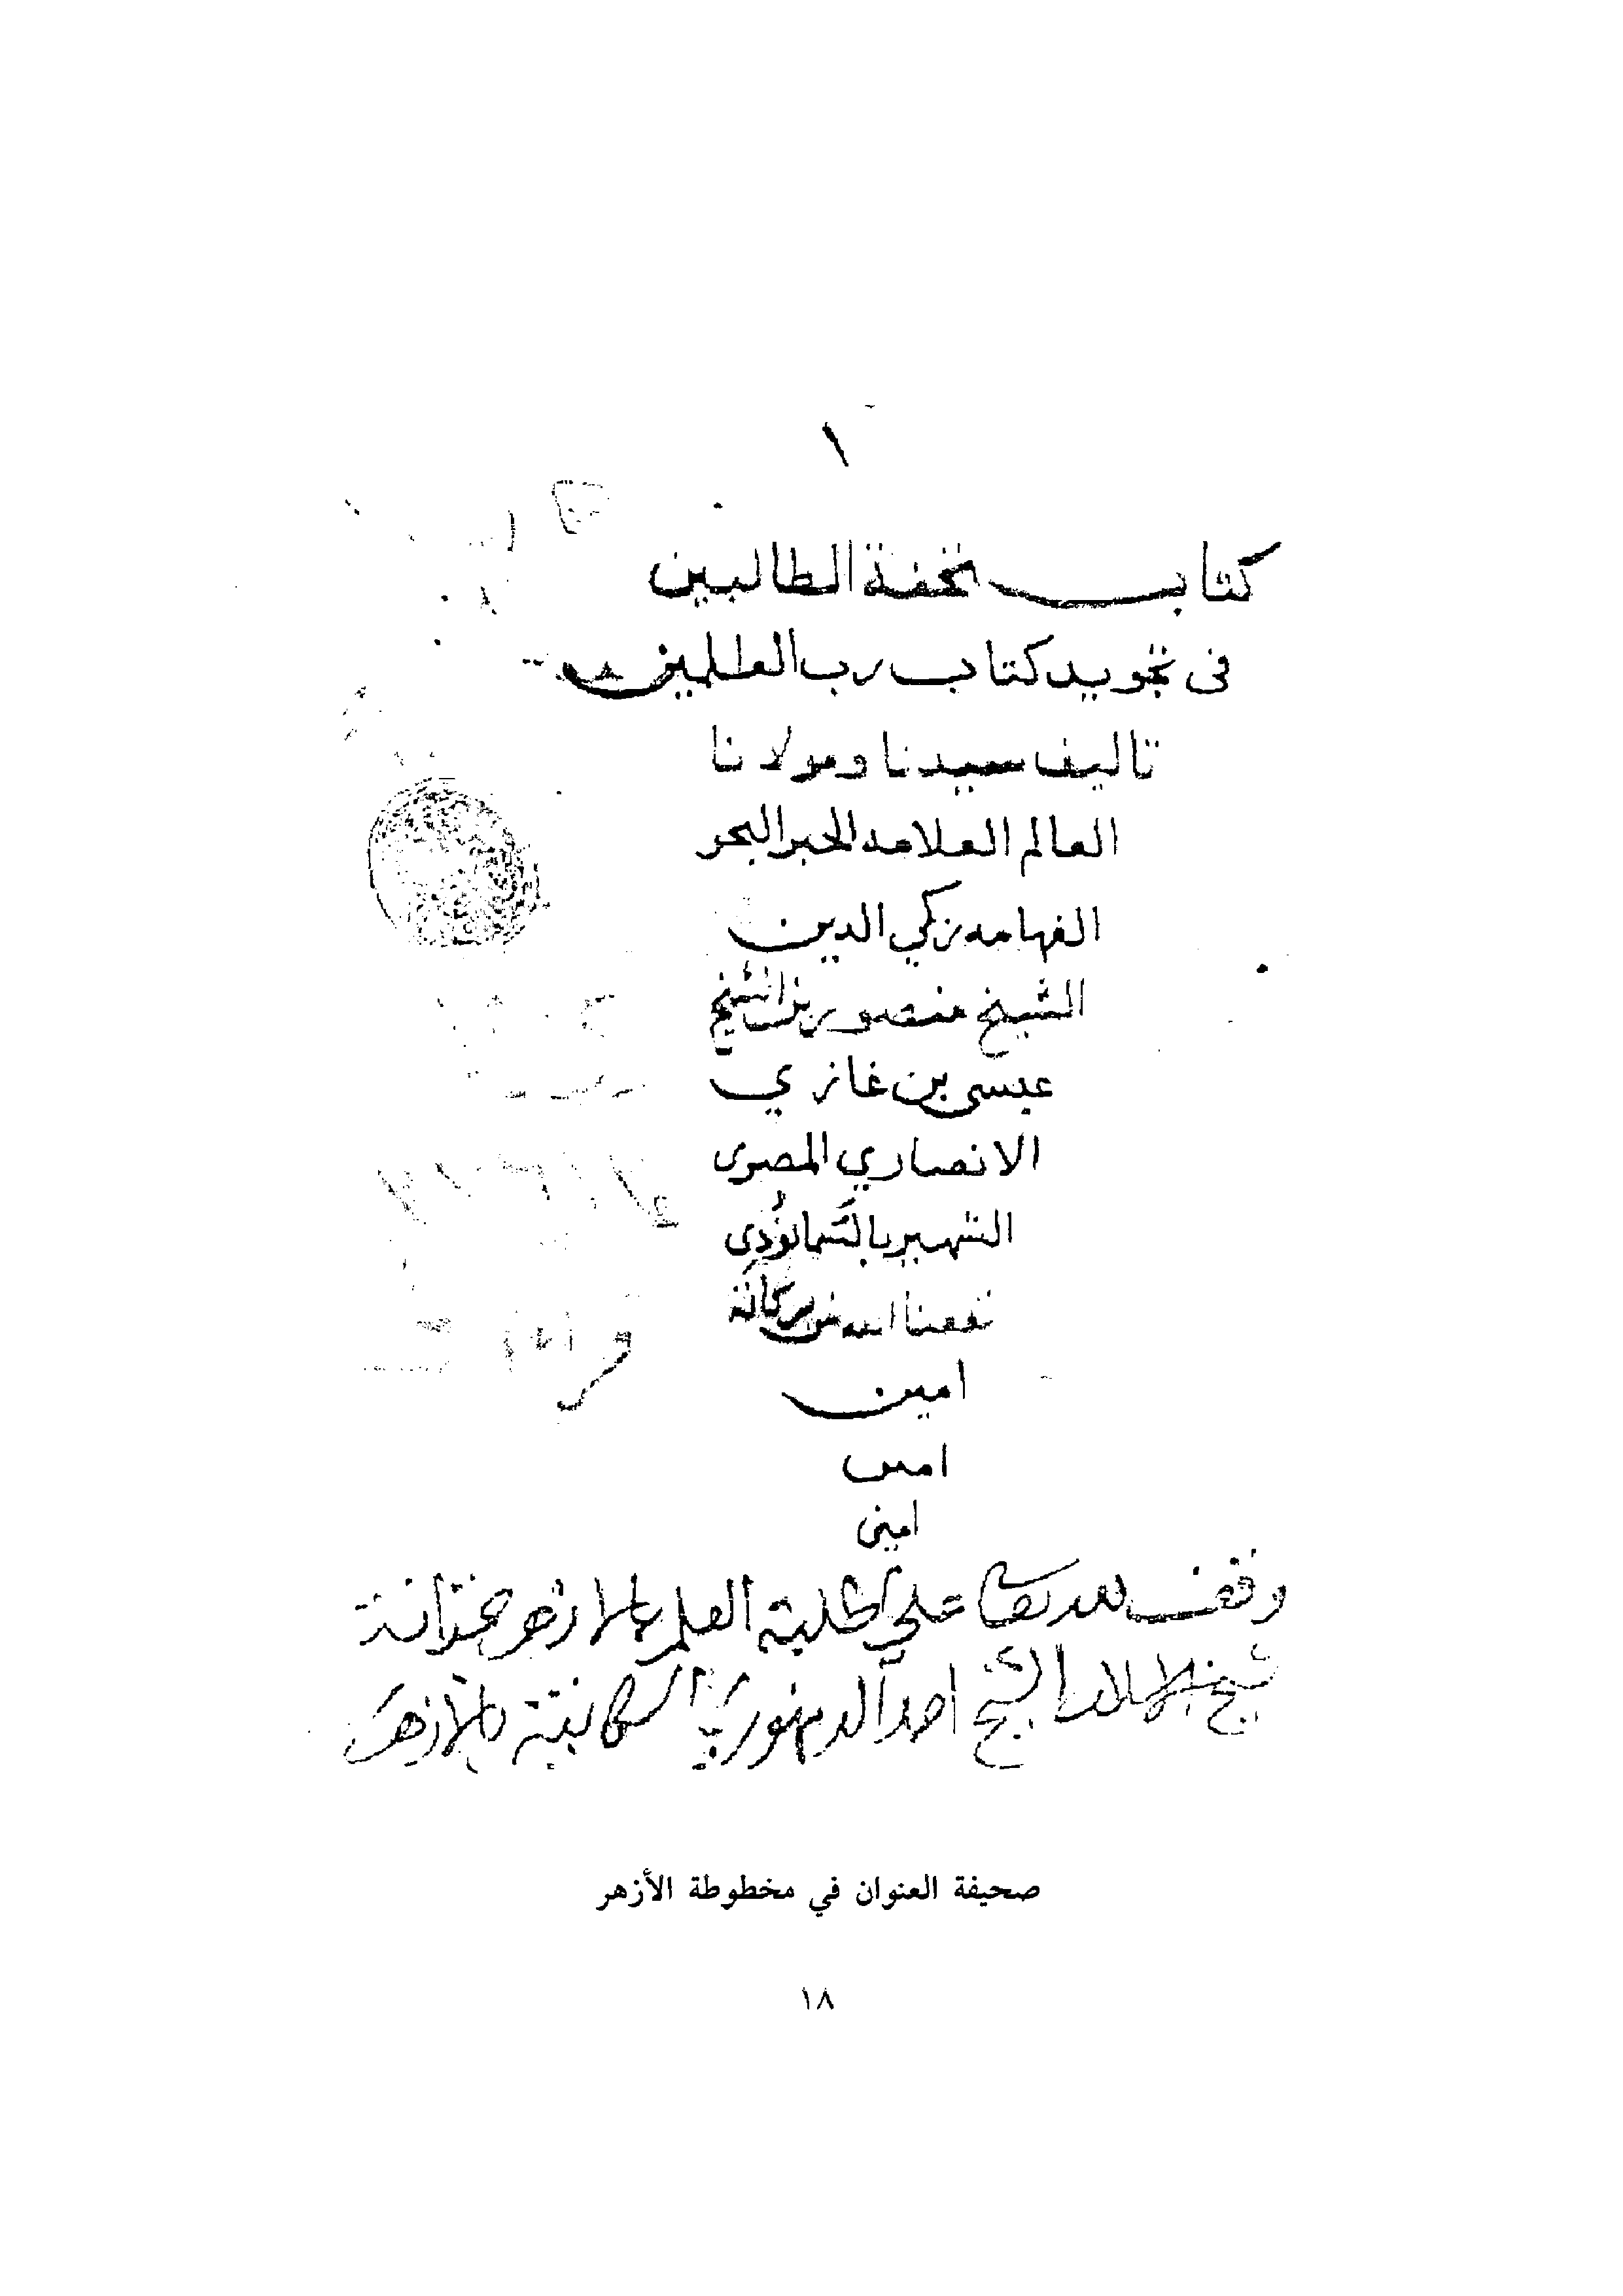 ١
كتاب تحفة الطالبين
فى تجويد كتاب رب العلمين
تاليف سيدنا ومولانا
العالم العلامه الحبر البحر
الفهامه زكي الدين
الشيخ منصور بن الشيخ
عيسى بن غازي
الانصاري المصرى
الشهير بالسمانودى
نفعنا الله من بركاته
امين
امين
امين
وقف لله تعا على طلبة العلم بالازهر بخزانة
شيخ الشيخ احمد الدمنهوري الكاينة بالازهر
صحيفة العنوان في مخطوطة الأزهر
١٨